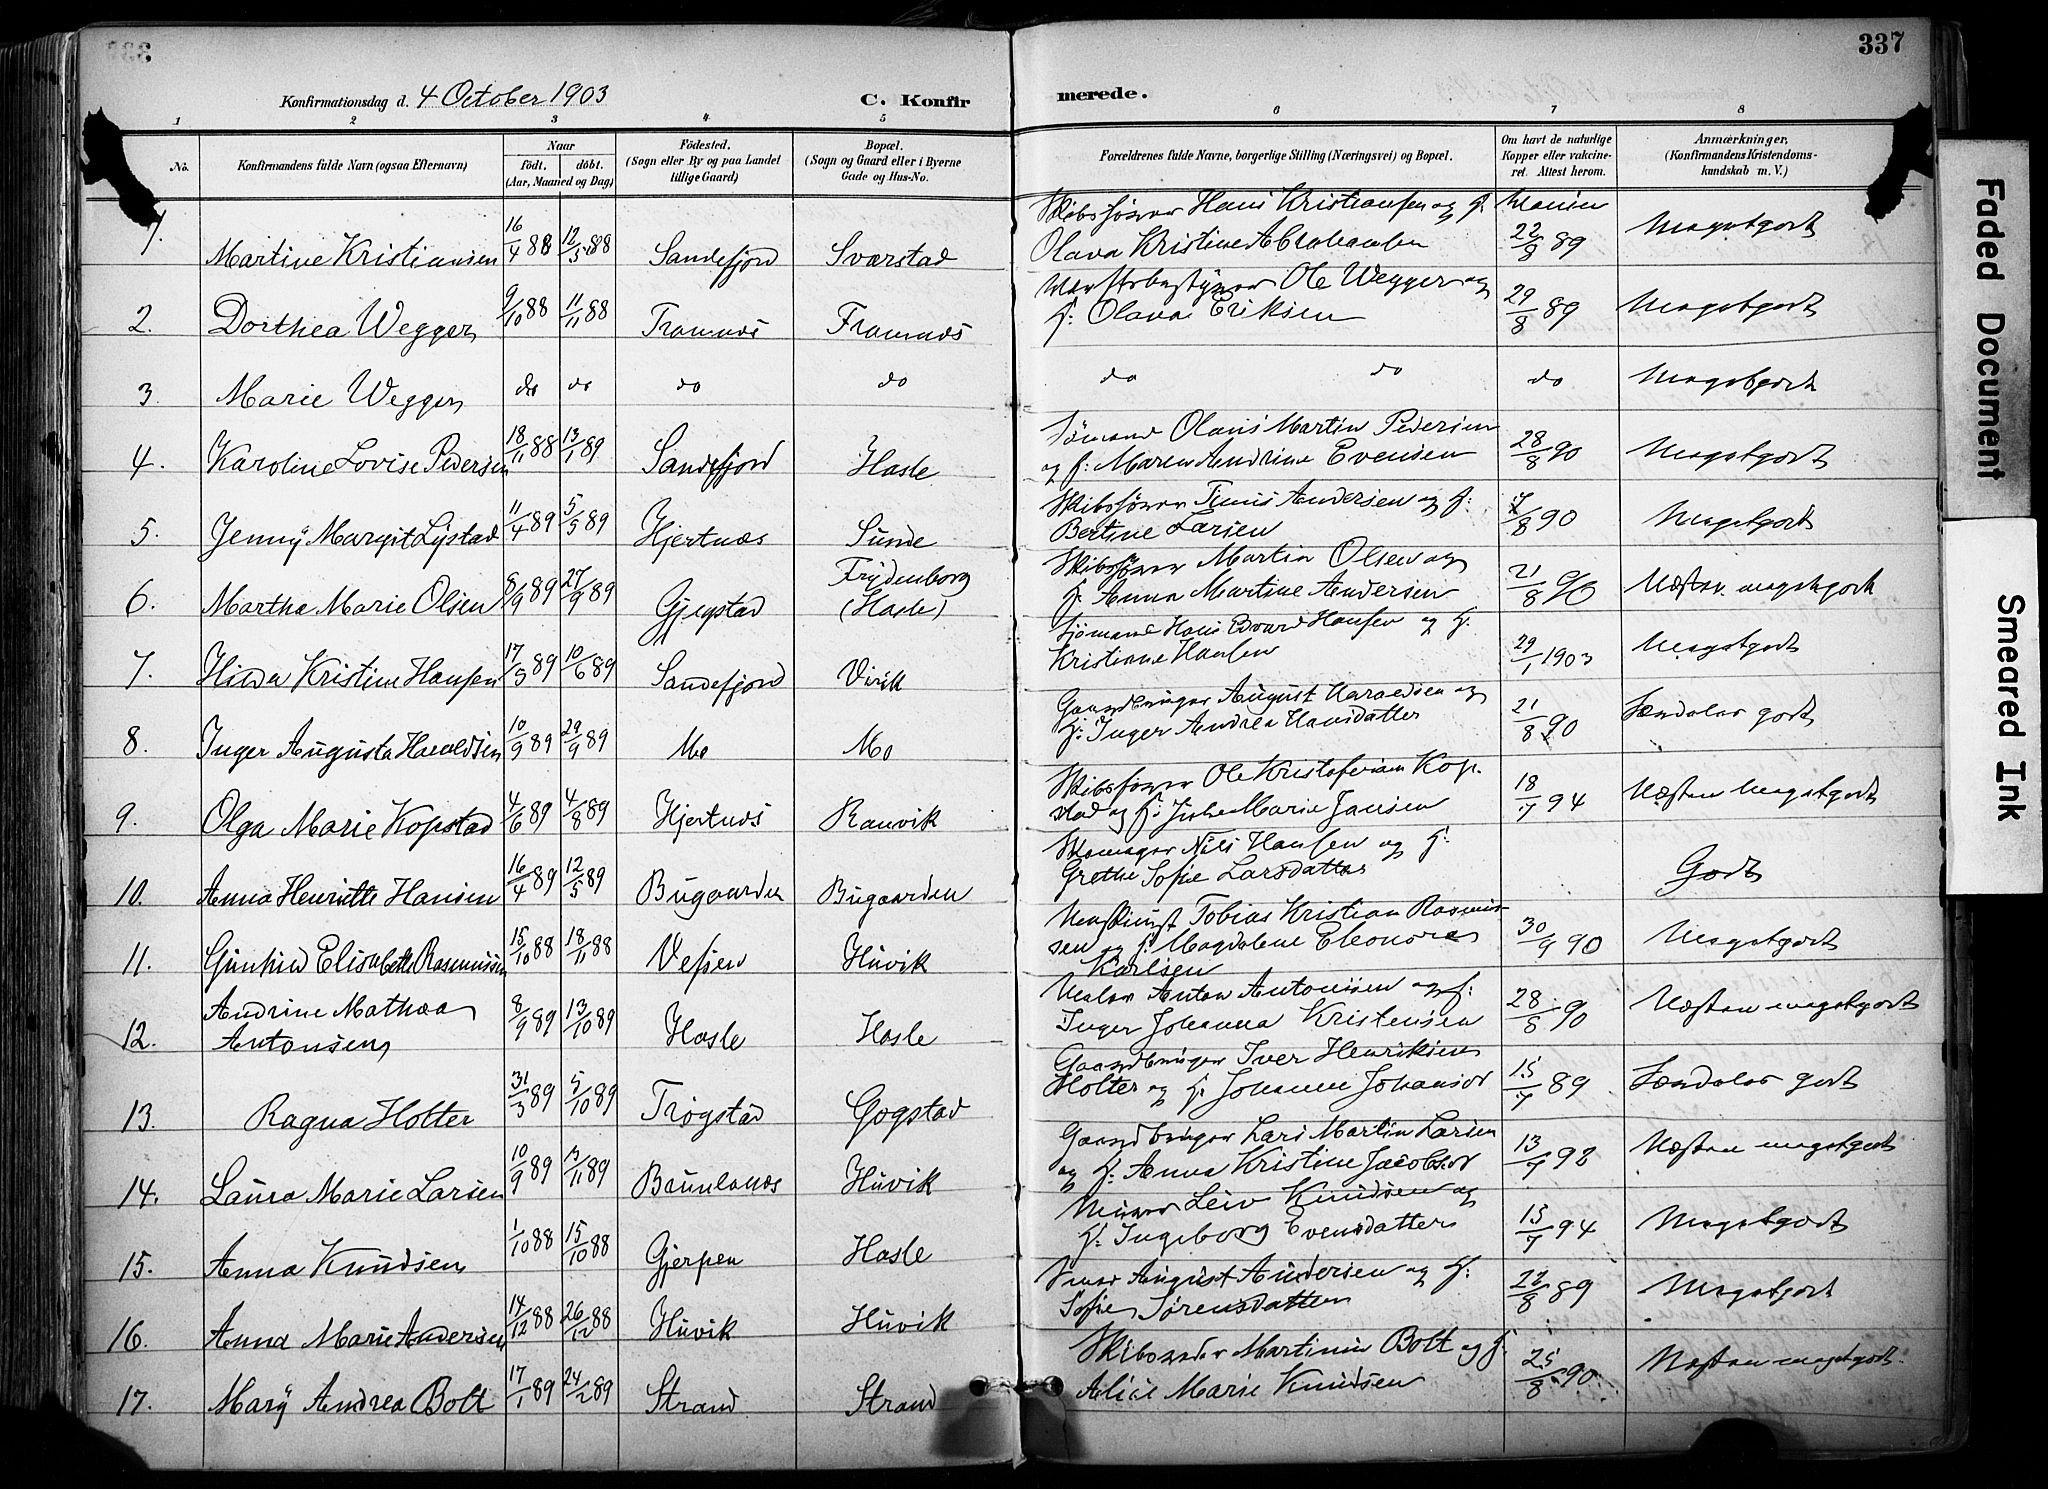 337
Konfirmationsdag d. 4 October 1903
C. Konfirmerede.
1 2 3 4 5 6 7 8
No. Konfirmandens fulde Navn (ogsaa Efternavn) Naar födt. döbt. (Aar, Maaned og Dag) Födested. (Sogn eller By og paa Landet tillige Gaard) Bopæl. (Sogn og Gaard eller i Byerne Gade og Hus-No.) Forældrenes fulde Navne, borgerlige Stilling (Næringsvei) og Bopæl. Om havt de naturlige Kopper eller vakcineret. Attest herom. Anmærkninger, (Konfirmandens Kristendomskundskab m. V.)
1. Martine Kristiansen 16/4 88 12/5 88 Sandefjord Sværstad Skibsfører Hans Kristiansen og h: Olava Kristine Abrahamsen 22/8 89 Megetgodt
2. Dorthea Wegger 9/10 88 11/11 88 Framnæs Framnæs Værftsbestyrer Ole Wegger og h: Olava Eriksen 29/8 89 Megetgodt
3. Marie Wegger do do do do do do do Megetgodt
4. Karoline Lovise Pedersen 18/11 88 13/1 89 Sandefjord Hasle Sømand Olaus Martin Pedersen og h: Maren Andrine Evensen 28/8 90 Megetgodt
5. Jenny Margit Lystad 11/4 89 5/5 89 Hjertnæs Sunde Skibsfører Andersen og h: Bertine Larsen /8 90 Megetgodt
6. Martha Marie Olsen 8/9 89 27/9 89 Gjegstad Frydenborg (Hasle) Skibsfører Martin Olsen og h: Anna Martine Andersen 21/8 90 Næsten megetgodt
7. Hilda Kristine Hansen 17/3 89 10/6 89 Sandefjord Virik Sjømand Hans Edvard Hansen og h: Kristiane Hansen 29/1 1903 Megetgodt
8. Inger Augusta Haraldsen 10/9 89 29/9 89 Mo Mo Gaardbruger August Haraldsen og h: Inger Andrea Hansdatter 21/8 90 Særdeles godt
9. Olga Marie Kopstad 4/6 89 4/8 89 Hjertnæs Ranvik Skibsfører Ole Kristofersen Kopstad og h: Marie Jansen 18/7 94 Næsten megetgodt
10. Anna Henriette Hansen 16/4 89 12/5 89 Bugaarden Bugaarden Skomager Nils Hansen og h: Grethe Sofie Larsdatter Godt
11. Gunhild Elisabeth Rasmussen 15/10 88 18/11 88 Vesten Huvik Tobias Kristian Rasmussen og h: Magdalene Eleonore Karlsen 30/9 90 Megetgodt
12. Andrine Mathea Antonsen 8/9 89 13/10 89 Hasle Hasle Maler Anton Antonisen og h: Inger Johanna Kristensen 28/8 90 Næsten megetgodt
13. Ragna Holter 31/3 89 5/10 89 Trøgstad Gogstad Gaardbruger Iver Henriksen Holter og h: Johanne Johansd 15/7 89 Særdeles godt
14. Laura Marie Larsen 10/9 89 3/11 89 Brunlanæs Huvik Gaardbruger Lars Martin Larsen og h: Anna Kristine Jacobsd 13/7 92 Næsten megetgodt
15. Anna Knudsen 1/10 88 15/10 88 Gjerpen Hasle Murer Leiv Knudsen og h: Ingeborg Evensdatter 15/7 94 Megetgodt
16. Anna Marie Andersen 14/12 88 26/12 88 Huvik Huvik August Andersen og h: Sofie Sørensdatter 22/8 89 Megetgodt
17. Mary Andrea Bolt 17/1 89 24/2 89 Strand Strand Skibsreder Martinius Bolt og h: Alice Marie Knudsen 25/8 90 Næsten megetgodt
Faded Document
Smeared Ink